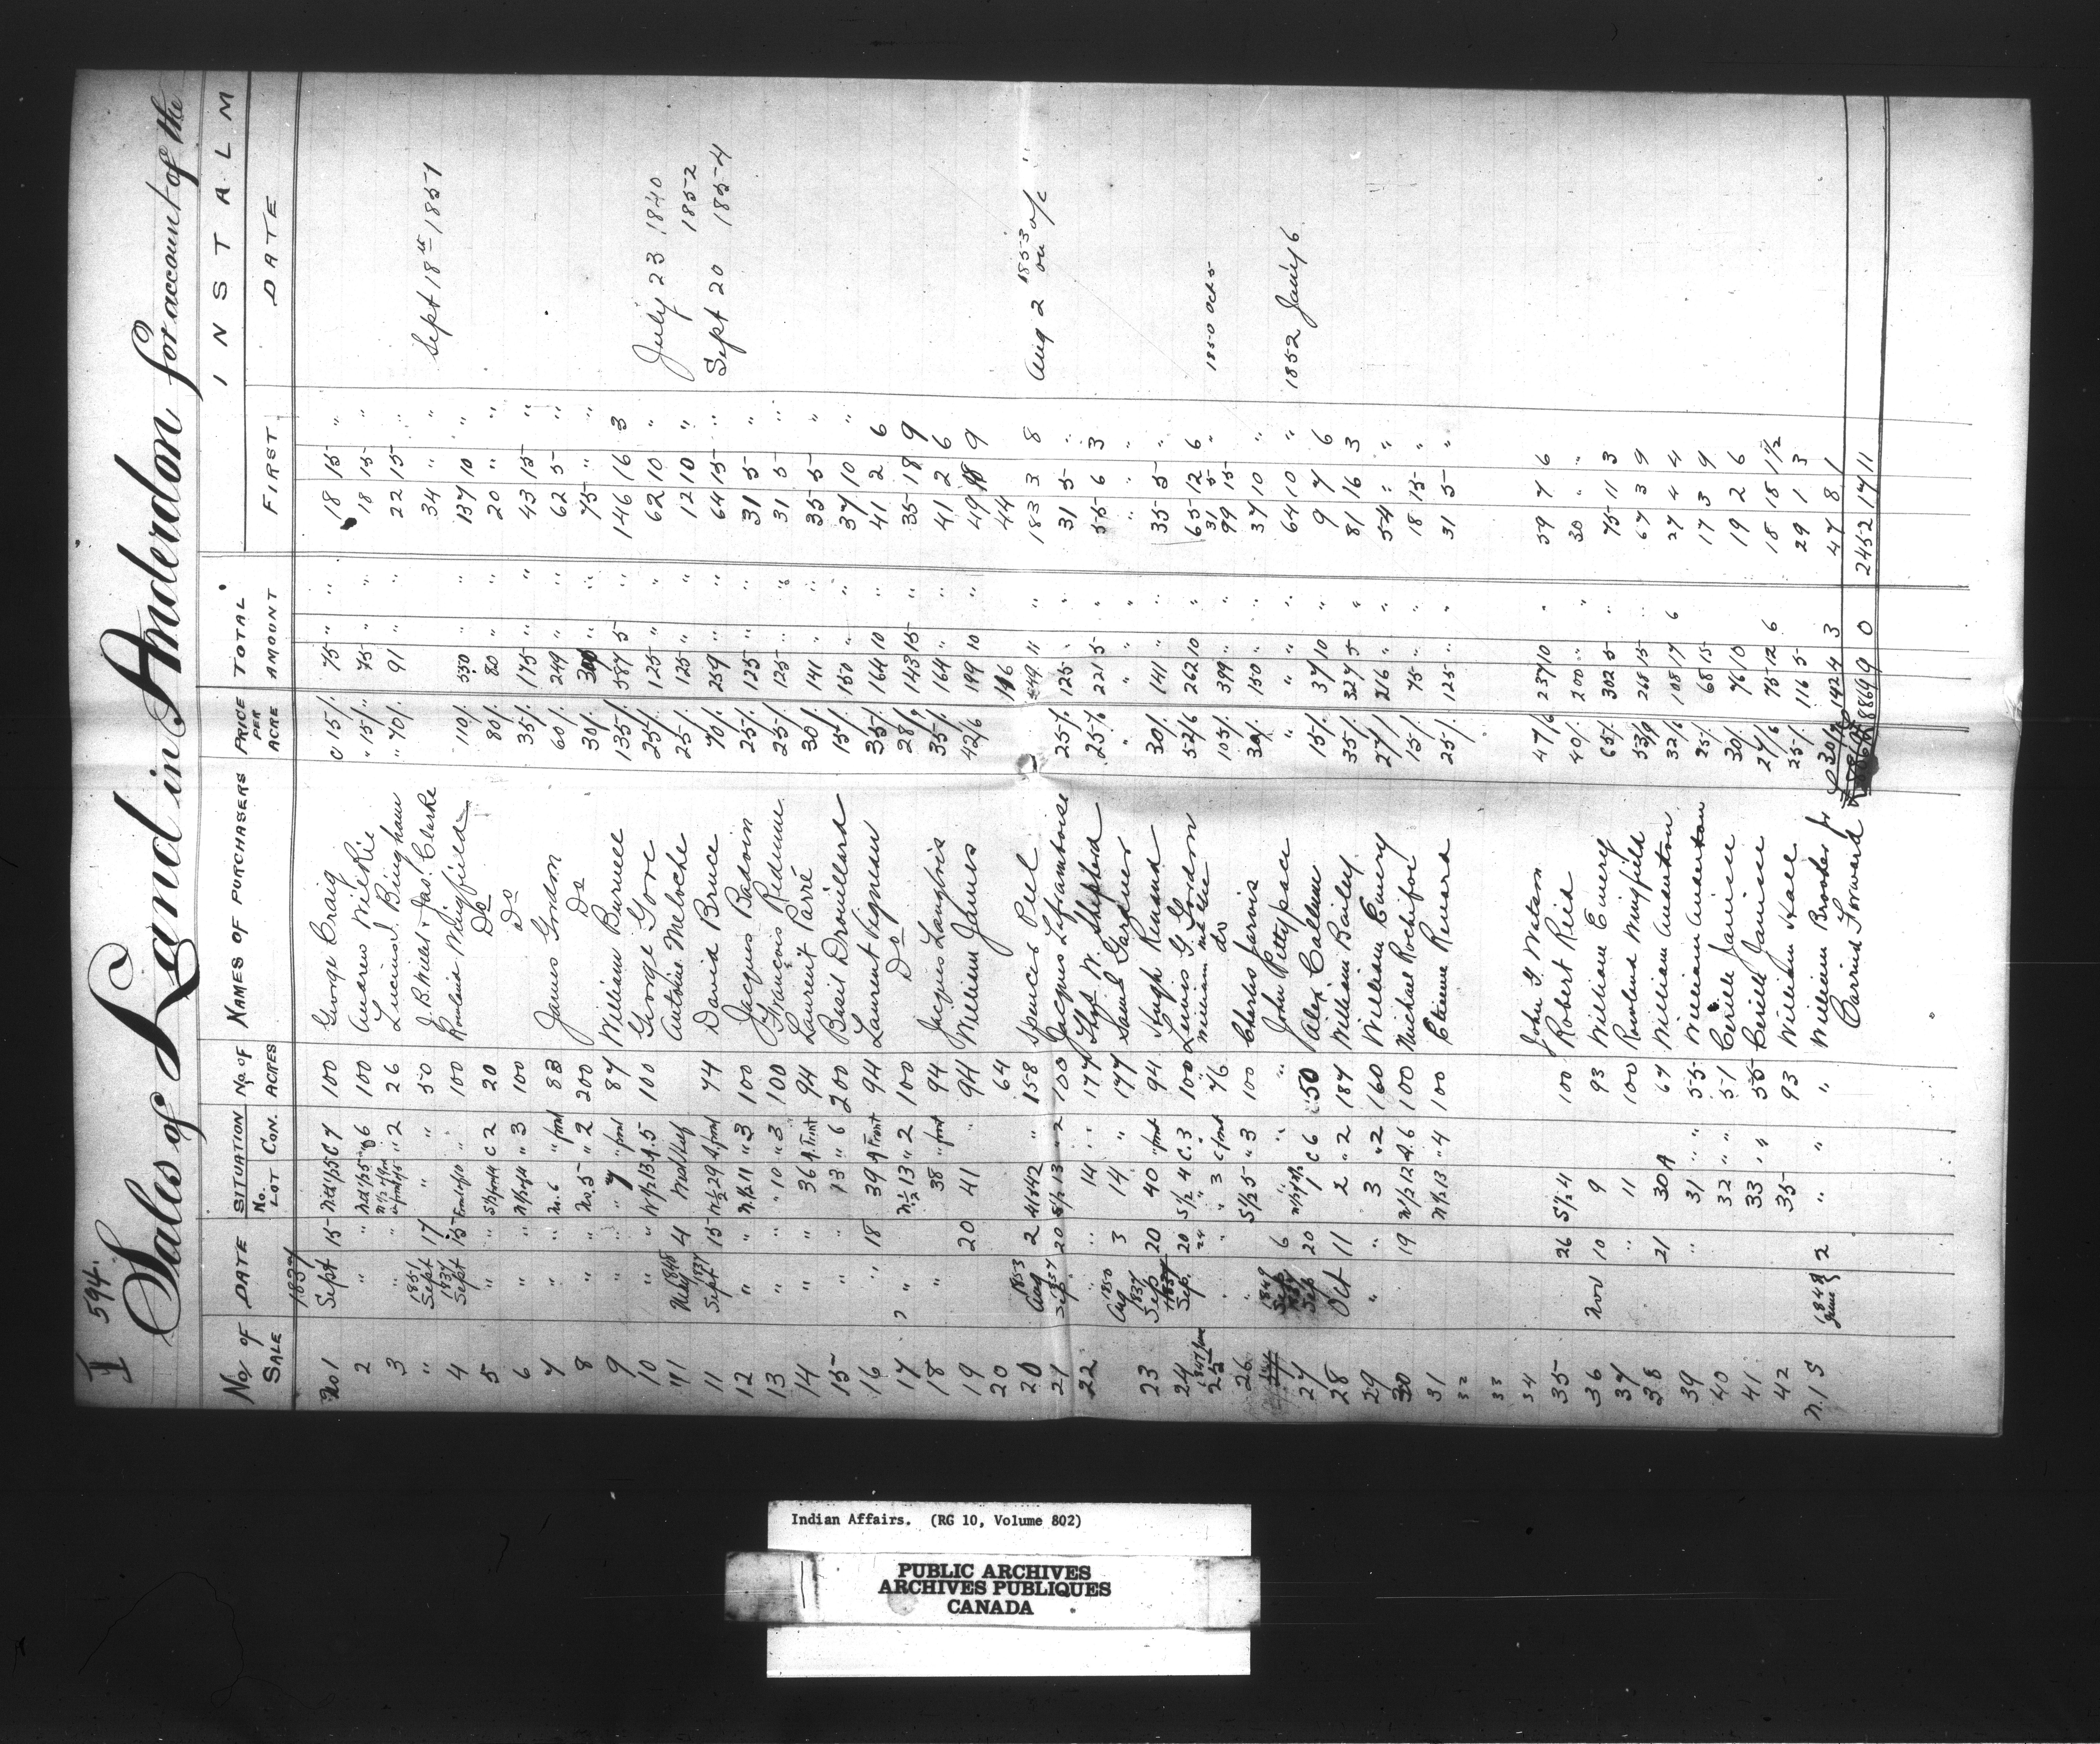 I 594.
Sales of Land in Anderdon for account of the
No. of SALE DATE SITUATION No. LOT CON. No of ACRES NAMES OF PURCHASERS PRICE PER ACRE TOTAL AMOUNT FIRST INSTALM DATE
1837
No 1 Sept 15 100 George Craig 15/. 75 " " 18 15 "
2 " " 100 Andrew Wilkie " 15/. 75 " " 18 15 "
3 " " " 2 26 Lucius Bingham " 70/. 91 " " 22 15 "
" 1851 Sept 17 " " 50 J. B. Willet & Jas. Clarke 34 " " Sept 18th 1851
4 1837 Sept 15 " 100 Rowland Wingfield 110/. 550 " " 137 10 "
5 " " C 2 20 Do 80/. 80 " " 20 " "
6 " " " 3 100 Do 35/. 175 " " 43 15 "
7 " " No. 6 " front 83 James Gordon 60/. 249 " " 62 5 "
8 " " No. 5 " 2 200 Do 30/. 300 " " 75 " "
9 " " " 7 " front 87 William Burwell 135/. 587 5 " 146 16 3
10 " " N1/2 13 A. 5 100 George Gore 25/. 125 " " 62 10 " July 23 1840
"11 1848 4 Antoine Meloche 25/. 125 " " 12 10 " 1852
11 1837 Sept 15 N 1/2 29 A front 74 David Bruce 70/. 259 " " 64 15 " Sept 20 1854
12 " " N.1/2 11 " 3 100 Jacques Badoin 25/. 125 " " 31 5 "
13 " " " 10 " 3 100 François Redume 25/. 125 " " 31 5 "
14 " " 36 A. Front 94 Laurent Parré 30/. 141 " " 35 5 "
15 " " 13 " 6 200 Basil Drouillard 15/. 150 " " 37 10 "
16 " 18 39 A Front 94 Laurent Vigneau 35/. 164 10 " 41 2 6
17 " N 1/2 13 " 2 100 Do 28/9 143 15 " 35 18 9
18 " 38 " front 94 Jacques Langlois 35/. 164 " " 41 2 6
19 20 41 " 94 William James 42/6 199 10 " 49 18 9
20 64 116 44
20 1853 Aug 2 41 & 42 " 158 Spencer Peel 449 11 " 183 3 8 Aug 2 1853 on a/c "
21 1837 Sep. 20 S 1/2 13 " 2 100 Jacques Laframboise 25/. 125 " " 31 5 "
22 " " 14 " " 177 Thos W. Shepherd 25/. 221 5 " 55 6 3
1850 Aug 3 14 " 177 Saml Gardner " " " " " " "
23 1837 Sep 20 40 " front 94 Hugh Renaud 30/. 141 " " 35 5 "
24 1837 Sep. 20 S 1/2 4 C. 3 100 Lewis G. Gordon 52/6 262 10 " 65 12 6
25 24 " 3 C front 76 William do 105/. 399 " " 31 5 " 99 15 1850 Oct 5
26 " " S 1/2 5 " 3 100 Charles Jarvis 30/. 150 " " 37 10 "
1849 Sep 6 " " John Pettypiece " " " 64 10 " 1852 Jan'y 6
27 1837 Sep 20 1 C 6 50 Alex Callum 15/. 37 10 " 9 7 6
28 Oct 11 2 " 2 187 William Bailey 35/. 327 5 " 81 16 3
29 " " 3 " 2 160 William Emery 27/. 216 " " 54 " "
30 19 N/2 12 A. 6 100 Michael Rochfort 15/. 75 " " 18 15 "
31 N 1/2 13 " 4 100 Etienne Renard 25/. 125 " " 31 5 "
32
33
34 John G. Watson
35 26 S 1/2 4 100 Robert Reid 47/6 237 10 " 59 7 6
36 Nov 10 9 93 William Emery 40/. 200 " " 30 " "
37 " 11 100 Rowland Wingfield 65/. 302 5 " 75 11 3
38 21 30 A 67 William Anderton 53/9 268 15 " 67 3 9
39 " 31 " 55 William Anderton 32/6 108 17 6 27 4 4
40 32 " " 51 Cerille Janisse 25/. 68 15 17 3 9
41 33 " " 55 Cerille Janisse 30/. 76 10 19 2 6
42 35 93 William Hall 27/6 75 12 6 18 18 1 1/2
25/. 116 5 29 1 3
N. 15 1848 June 2 " " " William Brookes 30/. 142 4 3 47 8 1
Carried Forward 8869 9 0 2452 17 11
Indian Affairs. (RG 10, Volume 802)
PUBLIC ARCHIVES
ARCHIVES PUBLIQUES
CANADA